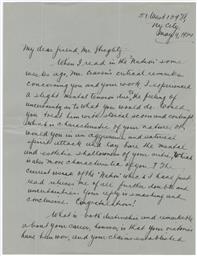 51 West 129 St
N.Y. City
May 4, 1927
My dear friend, Mr. Hughes:-
When I read in the "Nation" some
weeks ago, Mr. critical remarks
concerning you and your work, I experienced
a slight mental tension due to the feeling of
uncertainty as to what you would do. Would
you treat him with stoical scorn and contempt
(which is characteristic of your nature) or
would you in an aggressive and satirical
attack and lay bare the mental
and esthetic shallowness of your critic, (which
is also more characteristic of you)? The
current issue of the "Nation" which I have just
read relieves me of all further doubts and
uncertainties. Your reply is smashing and
conclusive. Congratulations!
What is both distinctive and remarkable
about your career, however, is that your victories
have been won, and your claims established